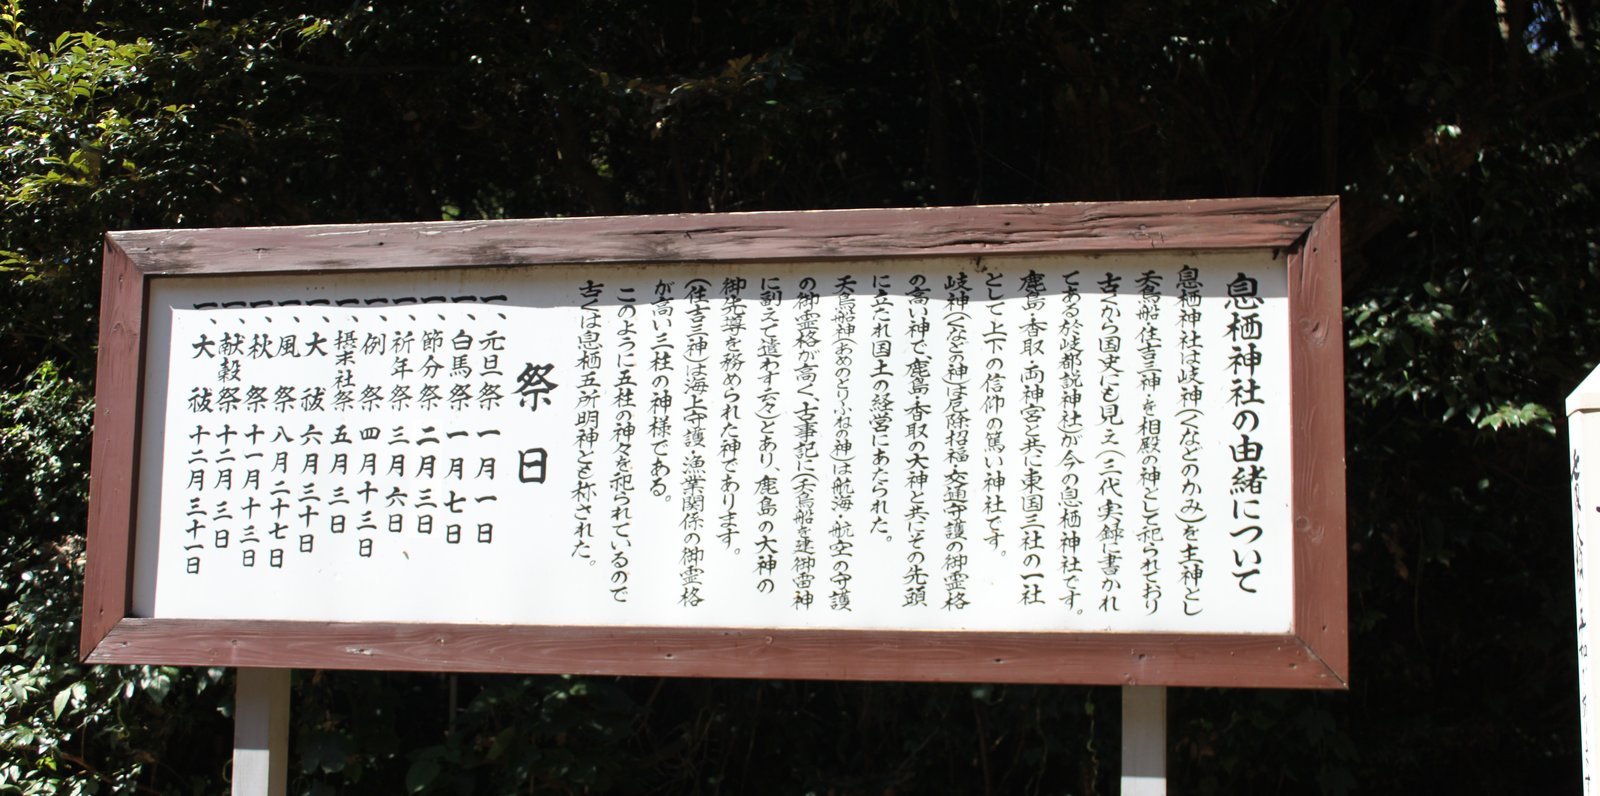 息栖神社の由緒について
息栖神社は岐神(くなどのかみ)を主神とし
天鳥船・住吉三神・を相殿の神として祀られており
古くから国史にも見え(三代実録に書かれ
てある於岐都説神社)が今の息栖神社です。
鹿島・香取・両神宮と共に東国三社の一社
として上下の信仰の篤い神社です。
岐神(くなどの神)は厄除招福・交通守護の御霊格
の高い神で、鹿島・香取の大神と共にその先頭
に立たれ国土の経営にあたられた。
天鳥船神(あめのとりふねの神)は航海・航空の守護
の御霊格が高く、古事記に(天鳥船を建御雷神
に副えて遣わす云々)とあり、鹿島の大神の
御先導を務められた神であります。
(住吉三神)は海上守護・漁業関係の御霊格
が高い三柱の神様である。
このように五柱の神々を祀られているので
古くは息栖五所明神とも称された。
祭日
一、元旦祭 一月一日
一、白馬祭 一月七日
一、節分祭 二月三日
一、祈年祭 三月六日
一、例祭 四月十三日
一、摂末社祭 五月三日
一、大祓 六月三十日
一、風祭 八月二十七日
一、秋祭 十一月十三日
一、献穀祭 十二月三日
一、大祓 十二月三十一日